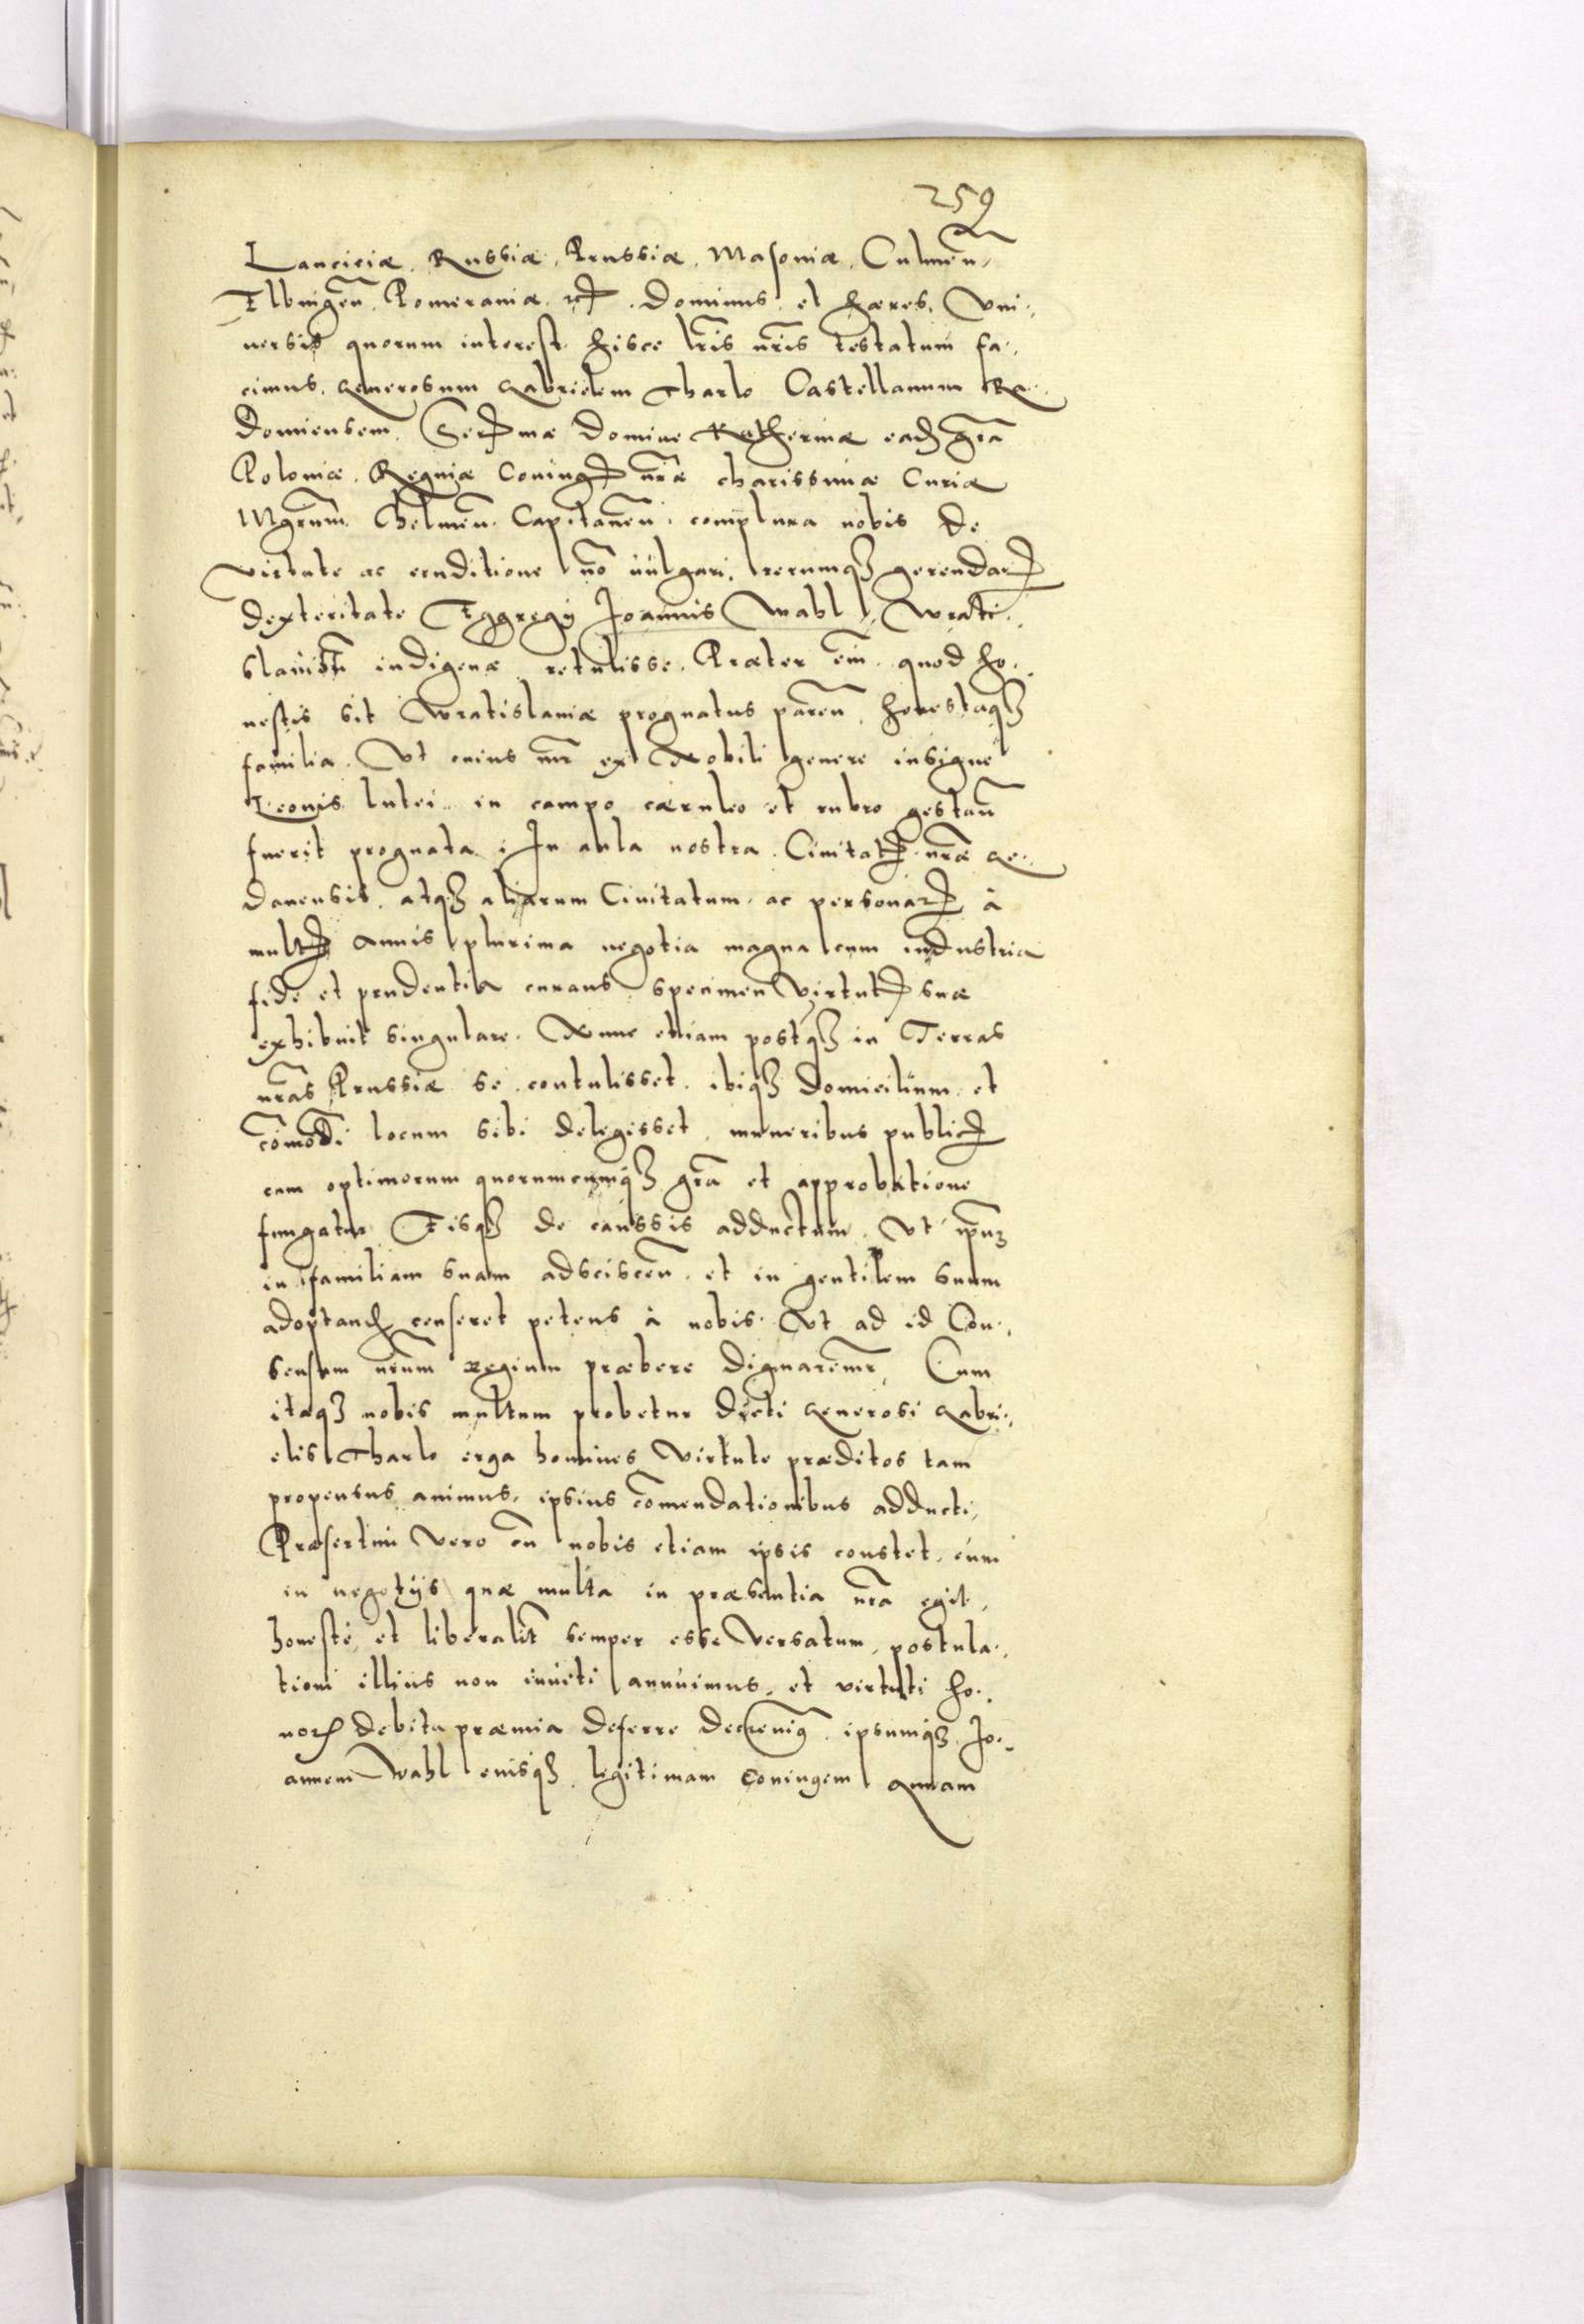 259
Lanciciæ. Russiæ. Prussiæ. Masoviæ. Culmeñ,
Elbingeñ. Pomeraniæ. etc. Dominus et hæres, Vni-,
uersis quorum interest hisce lr̃is nr̃is testatum fa-,
cimus, Generosum Gabrielem Tharlo Castellanum Ra-
domiensem, Sermæ Dominæ Katherinæ eadẽ gr̃a
Poloniæ Reginæ Coniugis nr̃æ charissimæ Curiæ
Mgr̃um, Chelmeñ. Capitaneũ, complura nobis de
virtute ac eruditione nõ uulgari, rerumq3 gerendar̃
dexteritate Egregij Joannis Wahl, Wrati-,
slauieñ indigenæ retulisse. Præter eĩm quod ho-,
nestis sit Wratislauiæ prognatus pareñ, honestaq3
familia. Vt cuius mr̃ ex Nobili genere insigne
Leonis lutei in campo cæruleo et rubro gestañ
fuerit prognata; In aula nostra Ciuitatis nr̃æ Ge-,
danensis, atq3 aliarum Ciuitatum, ac personar̃ à
multis Annis plurima negotia magna cum industria
fide et prudentia curans specimen Virtutis suæ
exhibuit singulare. Nunc etiam postq̃3 in Terras
nr̃as Prussiæ se contulisset, ibiq3 domicilium et
com̃odi locum sibi delegisset, muneribus publicis
cum optimorum quorumcumq3 gr̃a et approbatione
fungatur Eisq3 de caussis adductum, Vt ipsũ3
in familiam suam adsciscen̄ et in gentilem suum
adoptand̄ censeret petens à nobis Vt ad id Con-,
sensum nr̃um regium præbere dignaremr̃, Cum
itaq3 nobis multum probetur dicti Generosi Gabri-,
elis Tharlo erga homines Virtute præditos tam
propensus animus, ipsius com̃endationibus adducti,
Præsertim Vero cũ nobis etiam ipsis constet, eum
in negotijs quæ multa in præsentia nr̃a egit,
honeste et liberalit̃ semper esse Versatum, postula-,
tioni illius non inuiti annuimus, et virtuti ho-,
nor̃ debita præmia deferre decreuim9 ipsumq3 Jo-,
annem Wahl eiusq3 legitimam Coniugem Annam